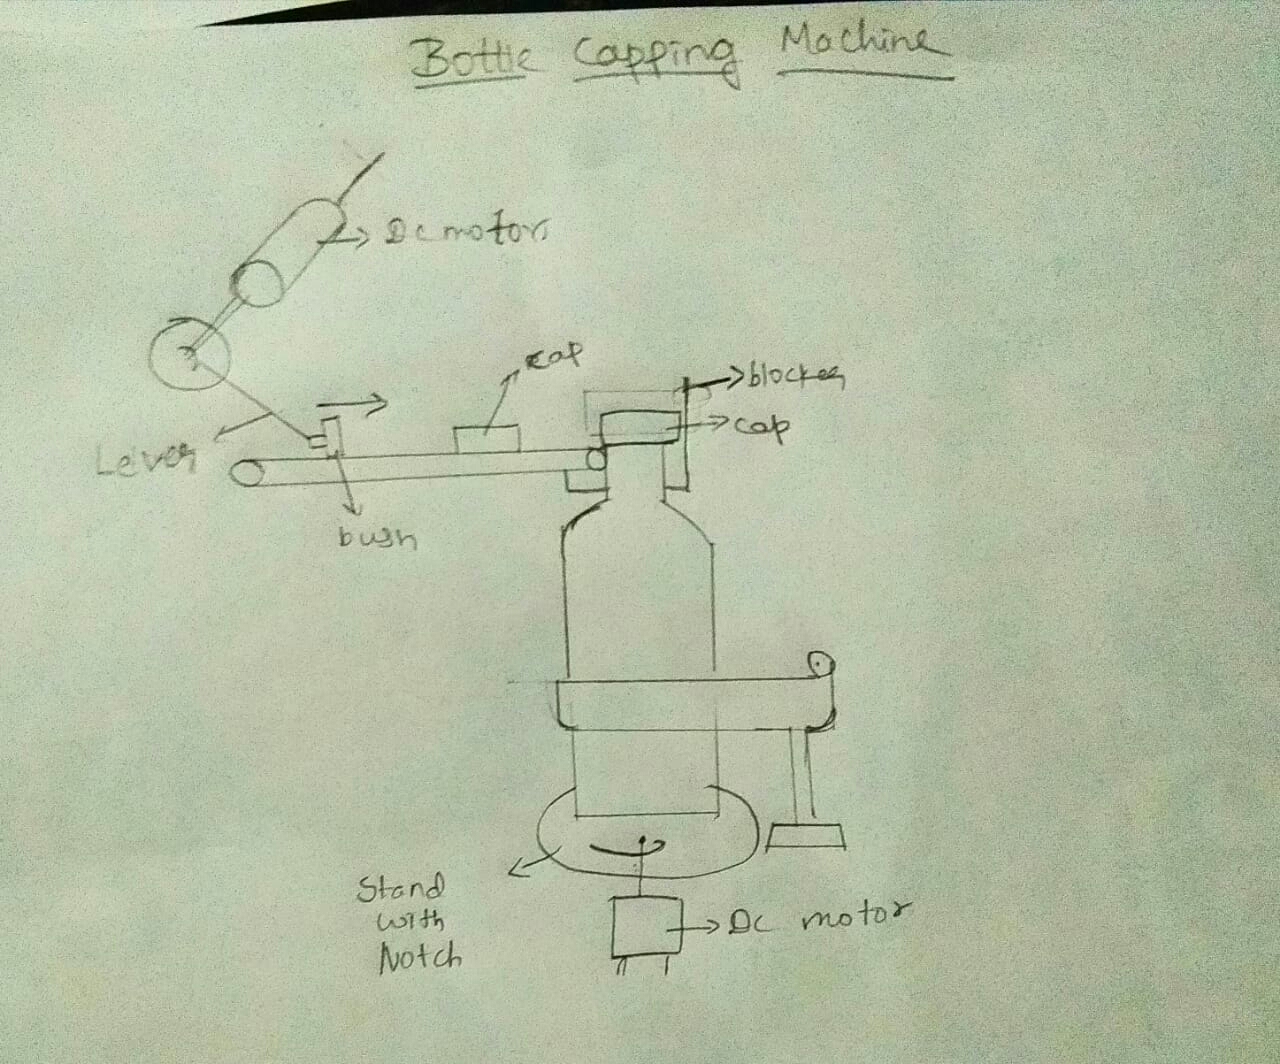 Bottle Capping Machine
Dc motor
cap
blocker
cap
Lever
bush
Stand
with
Notch
Dc motor